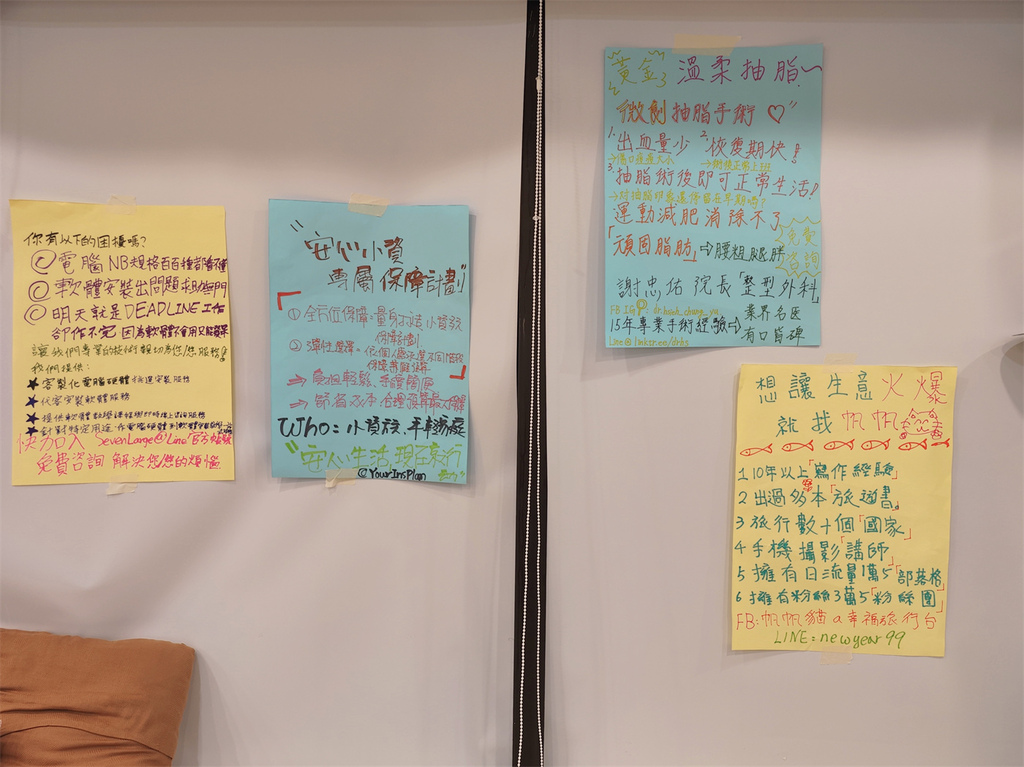 你有以下的困擾嗎?
電腦NB規格百百種都看不懂
軟體安裝出問題求助無門
明天就是DEADLINE工作
卻作不完 因為軟體不會用
讓我們專業的技術 親切為您服務!
我們提供:
★客製化電腦硬體 安裝服務
★代客安裝軟體服務
★提供軟體教學課程 線上諮詢服務
★針對特定用途
快加入 SevenLange@Line 官方帳號
免費咨詢 解決您您的煩惱
"安心小資
專屬保障計劃"
①全方位保障,量身打造 小資族
保障計劃
②彈性選擇,依個人需求選不同
⇒負擔輕鬆、手續簡便
⇒節省成本 合理預算最大保障
Who: 小資族、
"安心生活,現在豪行
@YourInsPlan
黃金 溫柔抽脂~
微創抽脂手術♡"
1.出血量少 2.恢復期快!
→傷口痘痘大小 →術後正常上班
3.抽脂術後即可正常生活!
→對抽脂印象還停留在早期嗎?
運動減肥消除不了
「頑固脂肪」⇒腰粗、腿胖
免費
咨詢
謝忠佑 院長「整型外科」
FB IG
15年專業手術經驗⇒業界名医
有口皆碑
想讓生意火爆
就找帆帆
1 10年以上「寫作經驗」
2 出過多本「旅遊書」
3 旅行數十個「國家」
4 手機攝影「講師」
5 擁有日流量1萬5「部落格」
6 擁有粉絲3萬5「粉絲團」
FB:帆帆貓a幸福旅行台
LINE=newyear99